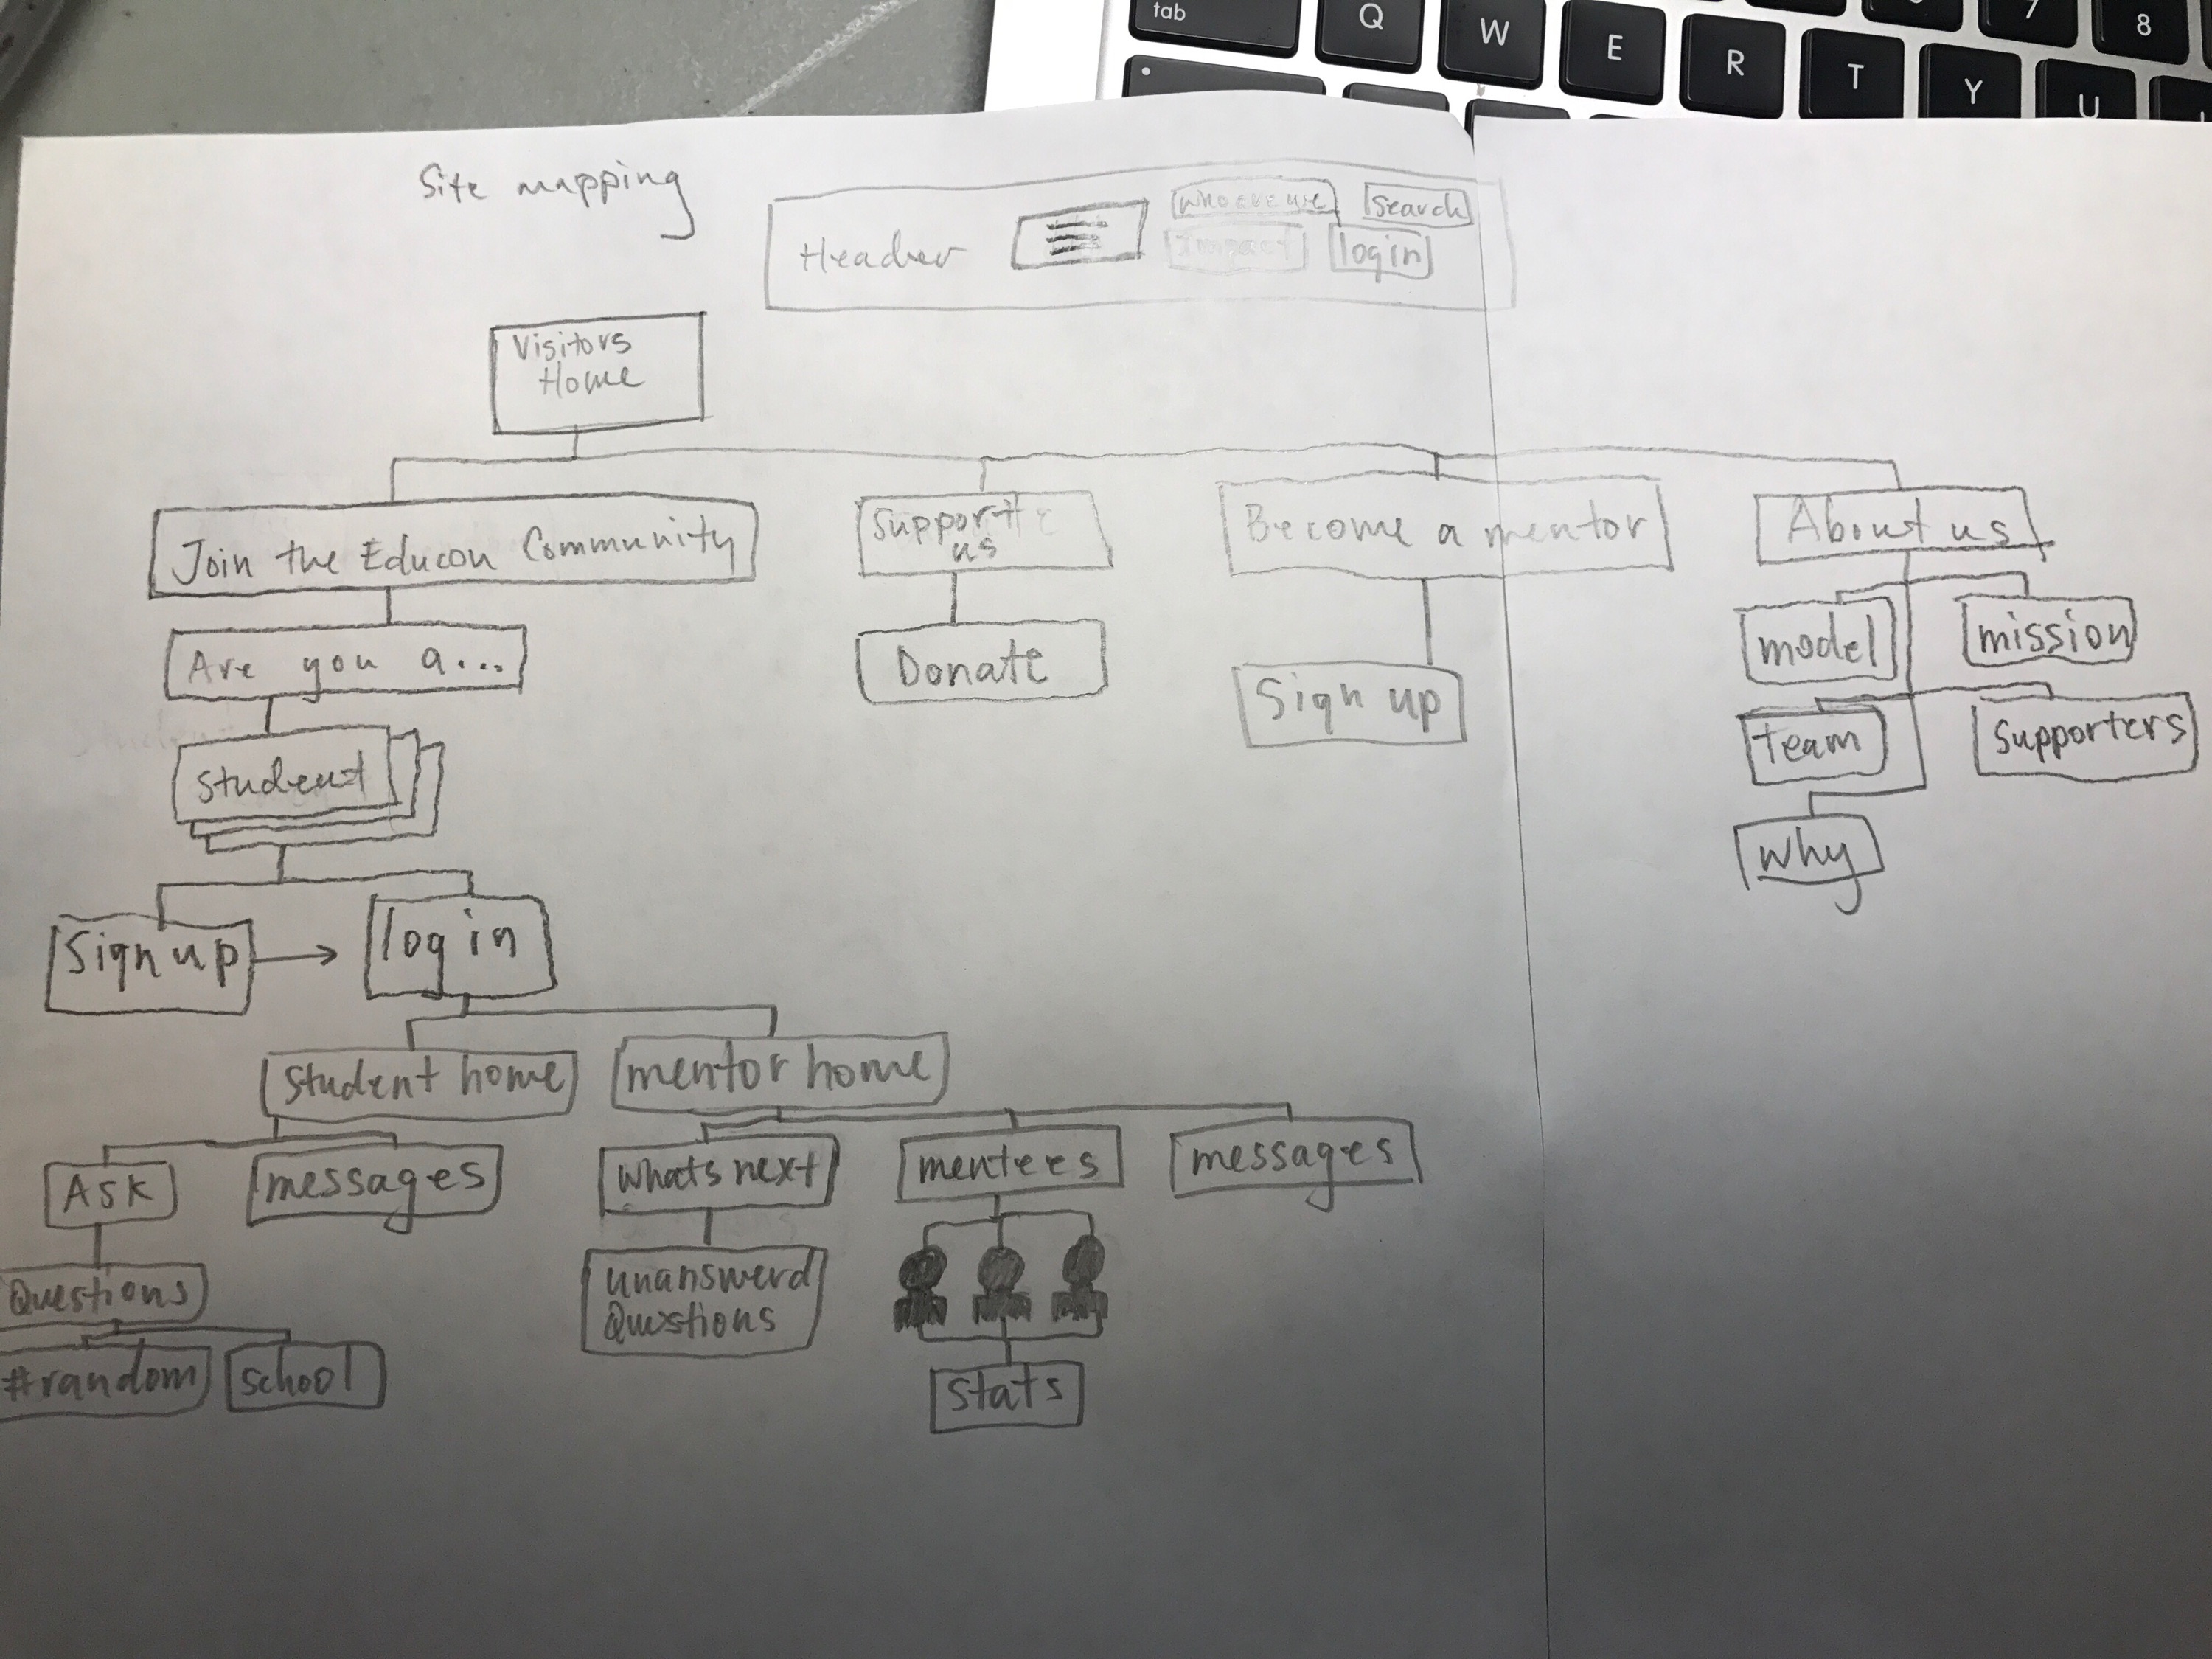 tab
Q
W
E
R
T
Y
U
7
8
Site mapping
Header
who are we
search
Impact
login
Visitors
Home
Join the Educon Community
Support
us
Become a mentor
About us
Are you a...
Donate
Sign up
model
mission
team
supporters
why
student
Sign up
log in
student home
mentor home
Ask
messages
whats next
mentees
messages
Questions
unanswerd
Questions
#random
school
stats